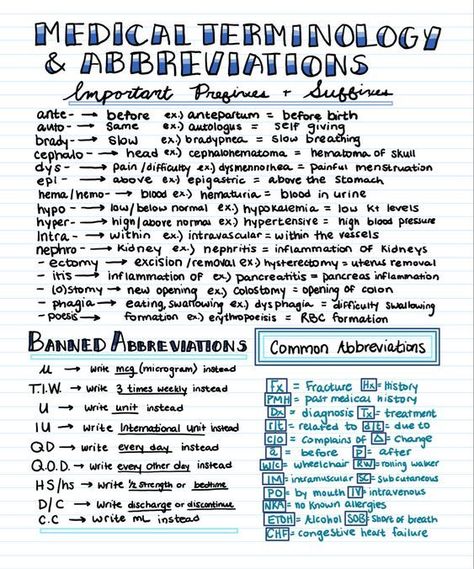 MEDICAL TERMINOLOGY
& ABBREVIATIONS
Important Prefixes + Suffixes
ante- → before ex.) antepartum = before birth
auto- → same ex.) autologus = self giving
brady- → slow ex.) bradypnea = slow breathing
cephalo- → head ex.) cephalohematoma = hematoma of skull
dys- → pain/difficulty ex.) dysmennorhea = painful menstruation
epi- → above ex.) epigastric = above the stomach
hema/hemo- → blood ex.) hematuria = blood in urine
hypo- → low/below normal ex.) hypokalemia = low K+ levels
hyper- → high/above normal ex.) hypertensive = high blood pressure
intra- → within ex.) intravascular = within the vessels
nephro- → kidney ex.) nephritis = inflammation of kidneys
-ectomy → excision/removal ex.) hysterectomy = uterus removal
-itis → inflammation of ex.) pancreatitis = pancreas inflammation
-(o)stomy → new opening ex.) colostomy = opening of colon
-phagia → eating, swallowing ex.) dysphagia = difficulty swallowing
-poesis → formation ex.) erythropoesis = RBC formation
BANNED ABBREVIATIONS
u → write mcg (microgram) instead
T.I.W. → write 3 times weekly instead
U → write unit instead
IU → write International unit instead
QD → write every day instead
Q.O.D. → write every other day instead
HS/hs → write ½ strength or bedtime
D/C → write discharge or discontinue
C.C → write mL instead
Common Abbreviations
Fx = Fracture Hx = History
PMH = past medical history
Dx = diagnosis Tx = treatment
r/t = related to d/t = due to
c/o = complains of Δ = change
a = before p = after
W/c = wheelchair RW = rolling walker
IM = intramuscular SC = subcutaneous
PO = by mouth IV = intravenous
NKA = no known allergies
ETOH = Alcohol SOB = short of breath
CHF = congestive heart failure